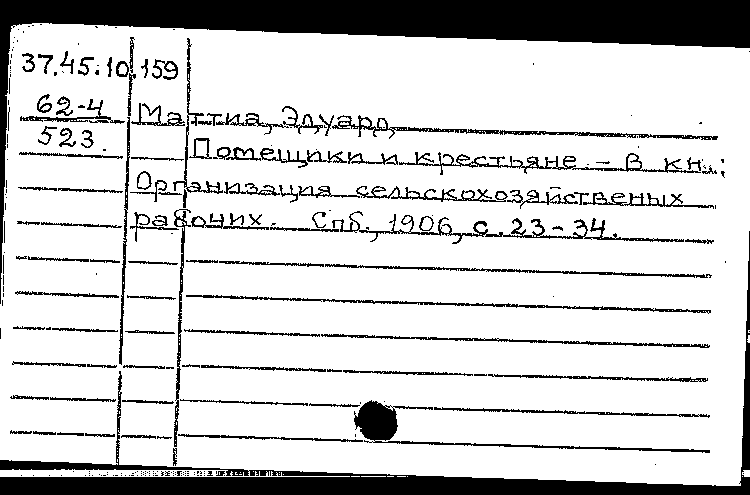 37.45.10.159
62-4 Маттиа, Эдуард
523. Помещики и крестьяне. - В кн.:
Организация сельскохозяйственых
рабочих. Спб., 1906, с. 23-34.